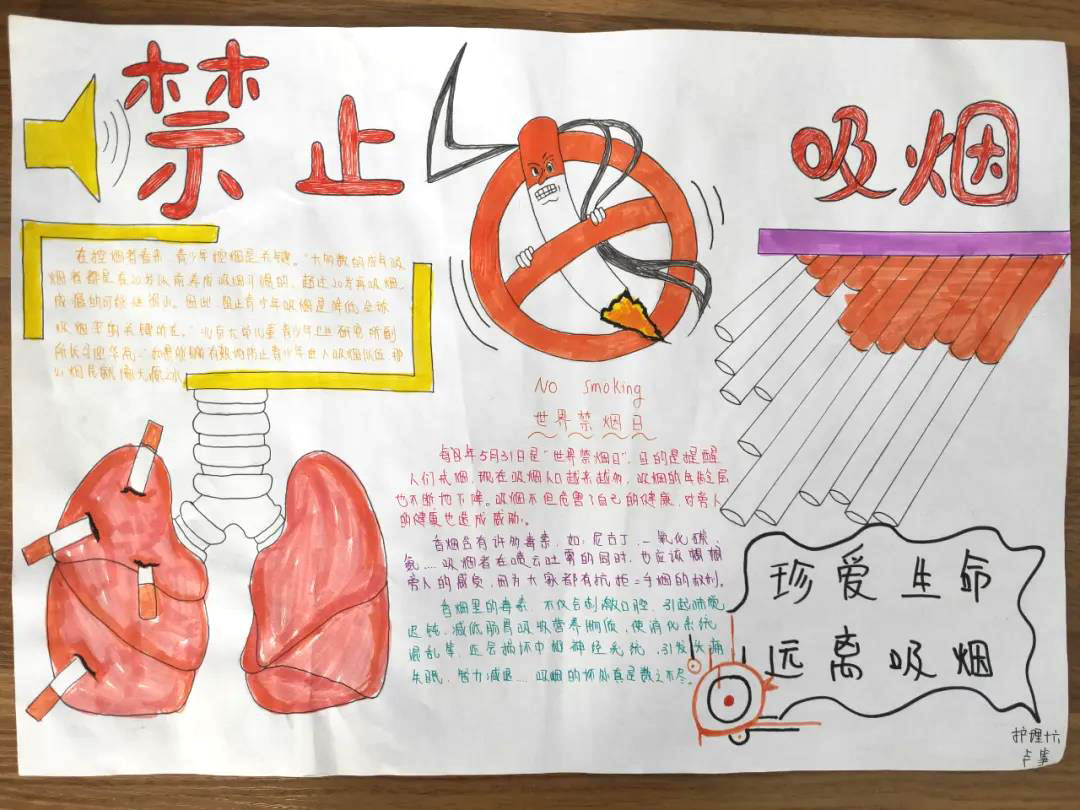 禁止
吸烟
在控烟者看来，青少年控烟是关键。"大多数的成年吸
烟者都是在20岁以前养成吸烟习惯的，超过20岁再吸烟
成瘾的可能性很小。因此，阻止青少年吸烟是降低全球
吸烟率的关键所在。"北京大学儿童青少年卫生研究所副
所长
No smoking
世界禁烟日
每年5月31日是"世界禁烟日"，目的是提醒
人们戒烟，现在吸烟人口越来越多，吸烟的年龄层
也不断地下降。吸烟不但危害了自己的健康，对旁人
的健康也造成威胁。
香烟含有许多毒素，如：尼古丁、一氧化碳、
氨....吸烟者在喷云吐雾的同时，也应该
旁人的感受，因为大家都有抗拒二手烟的权利。
香烟里的毒素，不仅会刺激口腔，引起
迟钝，减低肠胃吸收营养 ，使消化系统
混乱等，还会损坏中枢神经系统，引发头痛
失眠、智力减退....吸烟的坏处真是数之不尽。
珍爱生命
远离吸烟
护理十六